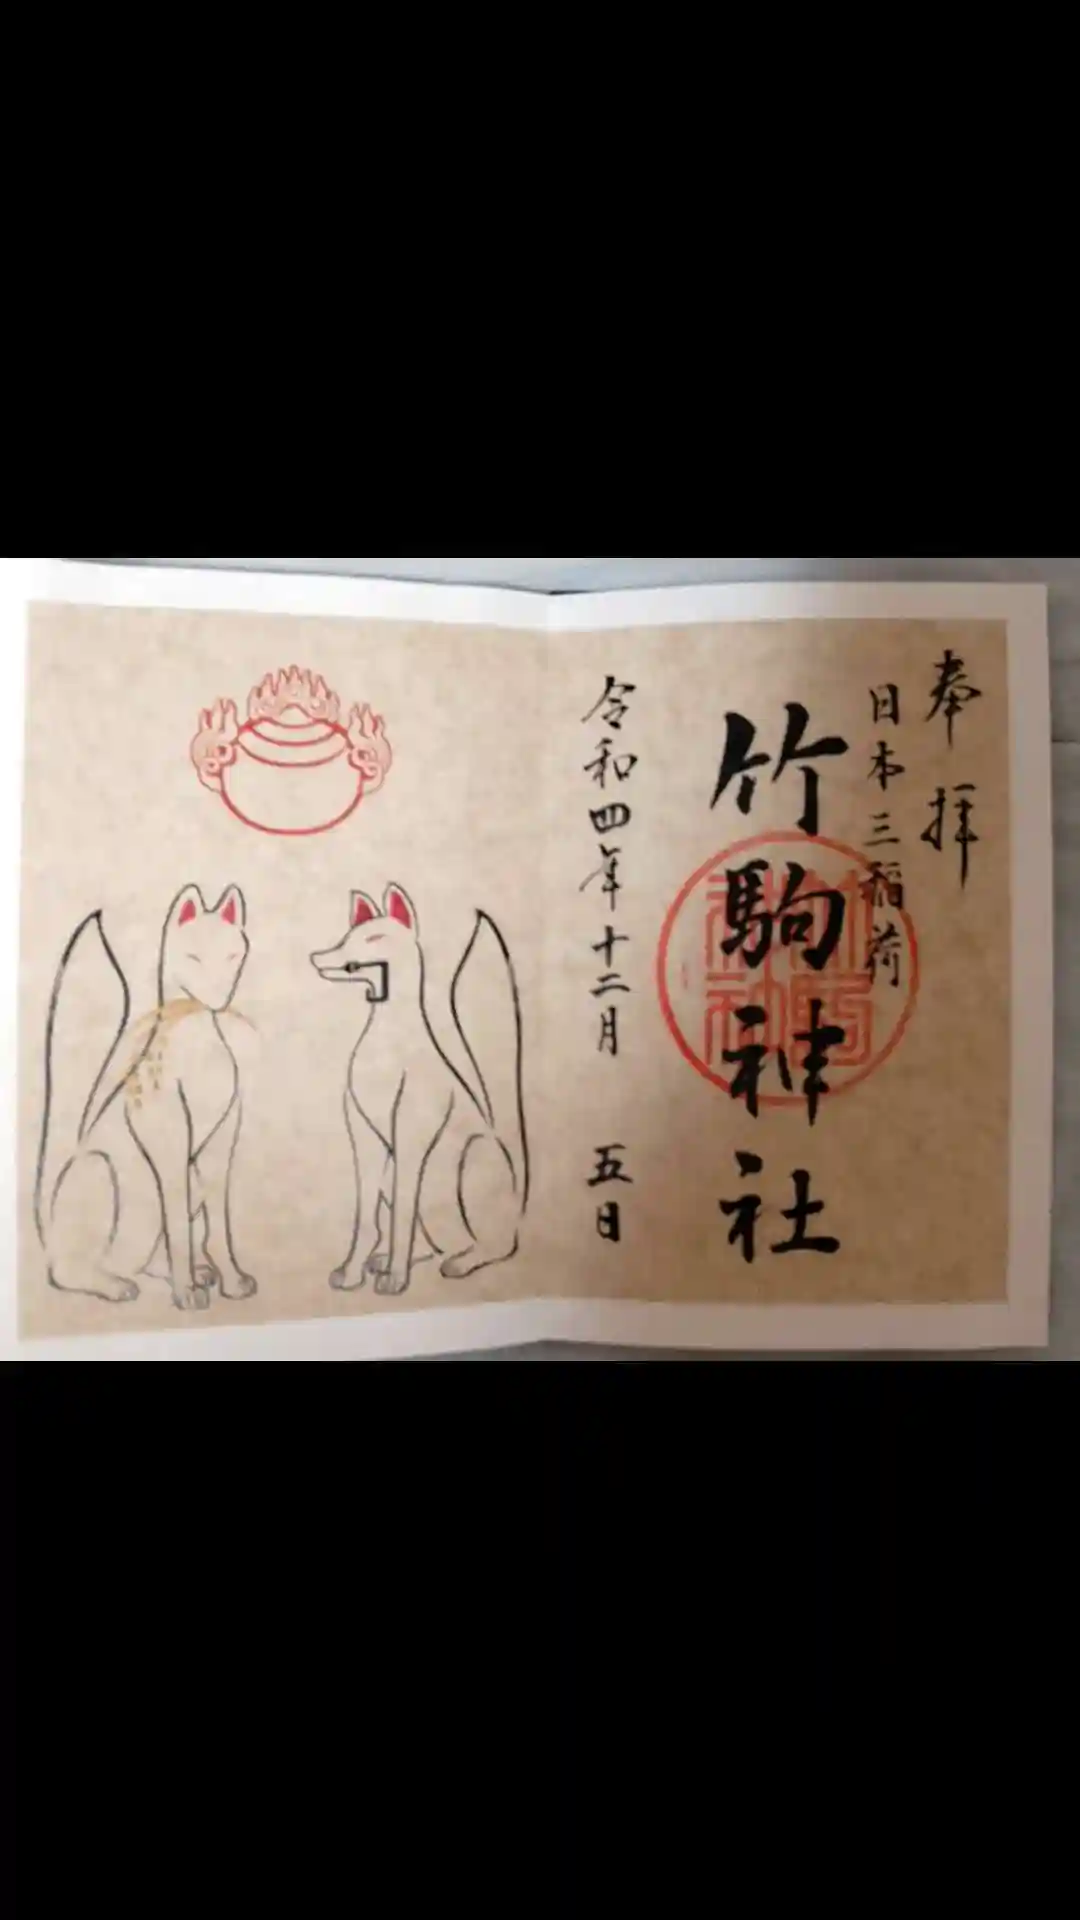 奉拝
日本三稲荷
竹駒神社
令和四年十二月 五日
竹駒神社